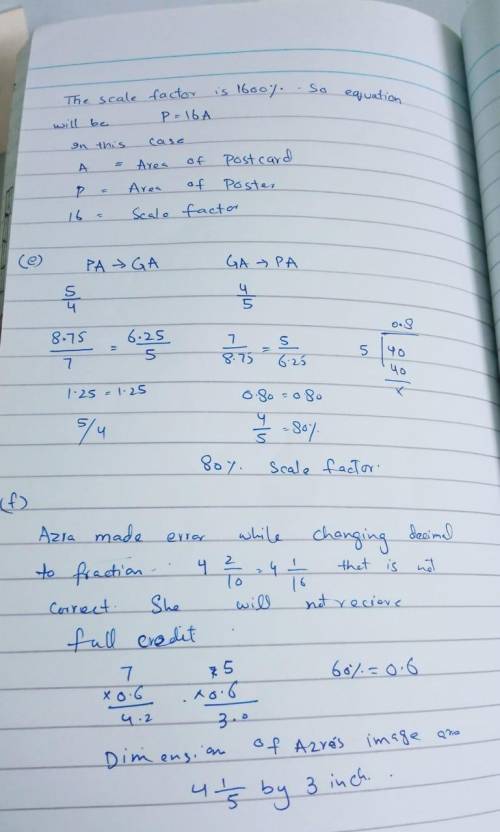 The scale factor is 1600%. So equation
will be P = 16A
In this case
A = Area of Postcard
P = Area of Poster
16 = Scale factor
(e) PA → GA GA → PA
5/4 4/5
8.75/7 = 6.25/5 7/8.75 = 5/6.25
0.8
5 40
40
x
1.25 = 1.25 0.80 = 0.80
5/4 4/5 = 80%
80% Scale factor.
(f)
Azra made error while changing decimal
to fraction. 4 2/10 = 4 1/16 that is not
correct. She will not recieve
full credit.
7 5 60% = 0.6
x0.6 x0.6
4.2 3.0
Dimension of Azra's image are
4 1/5 by 3 inch.